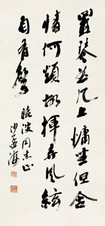 置琴曲几上慵坐但含
情何煩故揮弄風絃
自有聲
臨波同志正
沙孟海